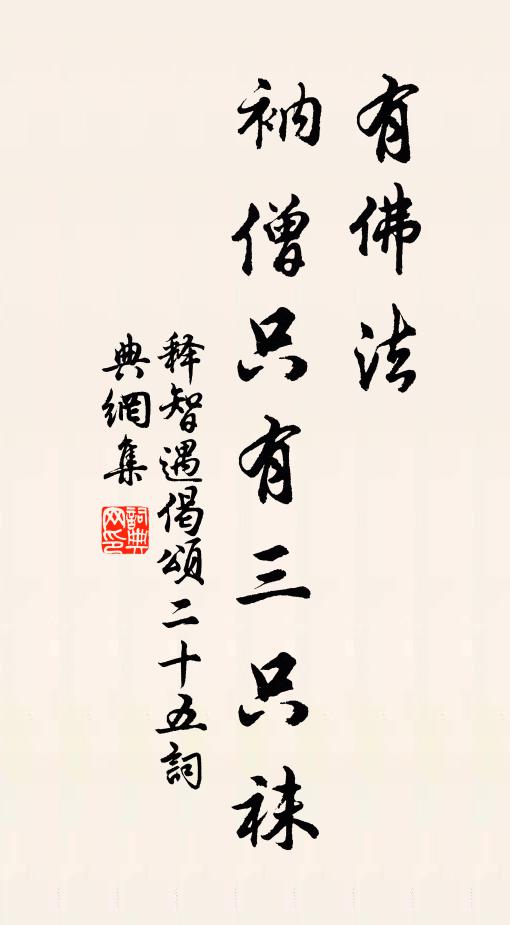 有佛法
衲僧只有三只袜
释智遇偈頌二十五詞
典網集
詞典网印